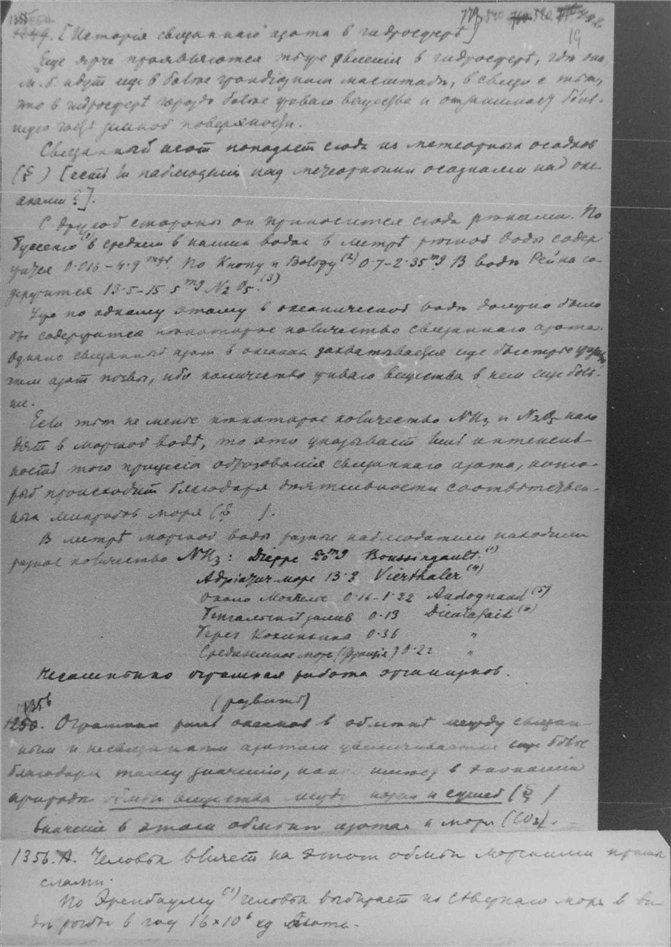 1355
[История связаннаго азота в гидросферѣ]
Еще ярче проявляются те же явления в гидросферѣ, где они
м. б. идут еще в более грандиозном масштабѣ, в связи с тѣм,
что в гидросферѣ гораздо более живого вещества и отвѣчает
земной поверхности.
Связанный азот попадает сюда из метеорных осадков
(§ ) [есть ли наблюдения над метеорными осадками над оке-
анами?].
С другой стороны он приносится сюда реками. По
в среднем в наших водах в литрѣ рѣчной воды содер
жится 0.016–4.9 mgr. По Кнопу и Wolffу (2) 0.7–2.35 mg В водѣ Рейна со
держится 13.5–15.5 mg N2O5. (3)
Уже по одному этому в океанической водѣ должно было
бы содержаться некоторое количество связанного азота.
Однако связанный азот в океанах захватывается еще быстрее
чем азот почвы, ибо количество живого вещества в нем еще боль-
ше.
Если тѣм не менѣе некоторое количество NH3 и N2O5 нахо
дят в морской водѣ, то это указывает на интенсив-
ность того процесса образования связанного азота, кото-
рый происходит благодаря деятельности соответствен-
ных микробов моря (§ ).
В литрѣ морской воды разные наблюдатели находили
разное количество NH3: Dieppe 20 mg Boussingault. (1)
Адриатич. море 13.2 Vierthaler (4)
Около 0.16–1.22 Audoynaud (5)
Бенгальский залив 0.13 Dieulafait (6)
Берег Кохинхина 0.36 "
Средиземное море (Франция) 0.22 "
огромная работа организмов.
(развить)
1356
1250. Огромная роль океанов в обмене между связан-
ным и несвязанным азотом увеличивается еще более
благодаря тому значению, какое имеет в экономии
природы обмен вещества между морем и сушей (§ )
значение в этом обмене азота и моря (CO2).
1356.А. Человек влияет на этот обмен морскими промы
слами.
По Эренбауму (1) человек выбирает из Северного моря в ви
де рыбы в год 16×10⁶ kg азота.